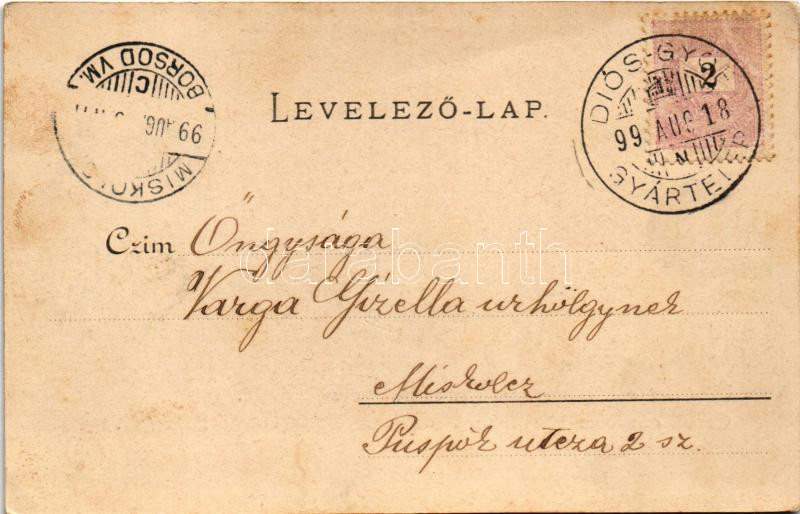 MISKOLC
BORSOD VM.
C
99 AUG.
LEVELEZŐ-LAP.
2
DIÓS-GYŐR
99 AUG 18
N
GYÁRTELEP
Czim Őngysága
Varga Gizella urhölgynek
Miskolcz
Püspök utcza 2 sz.
darabanth